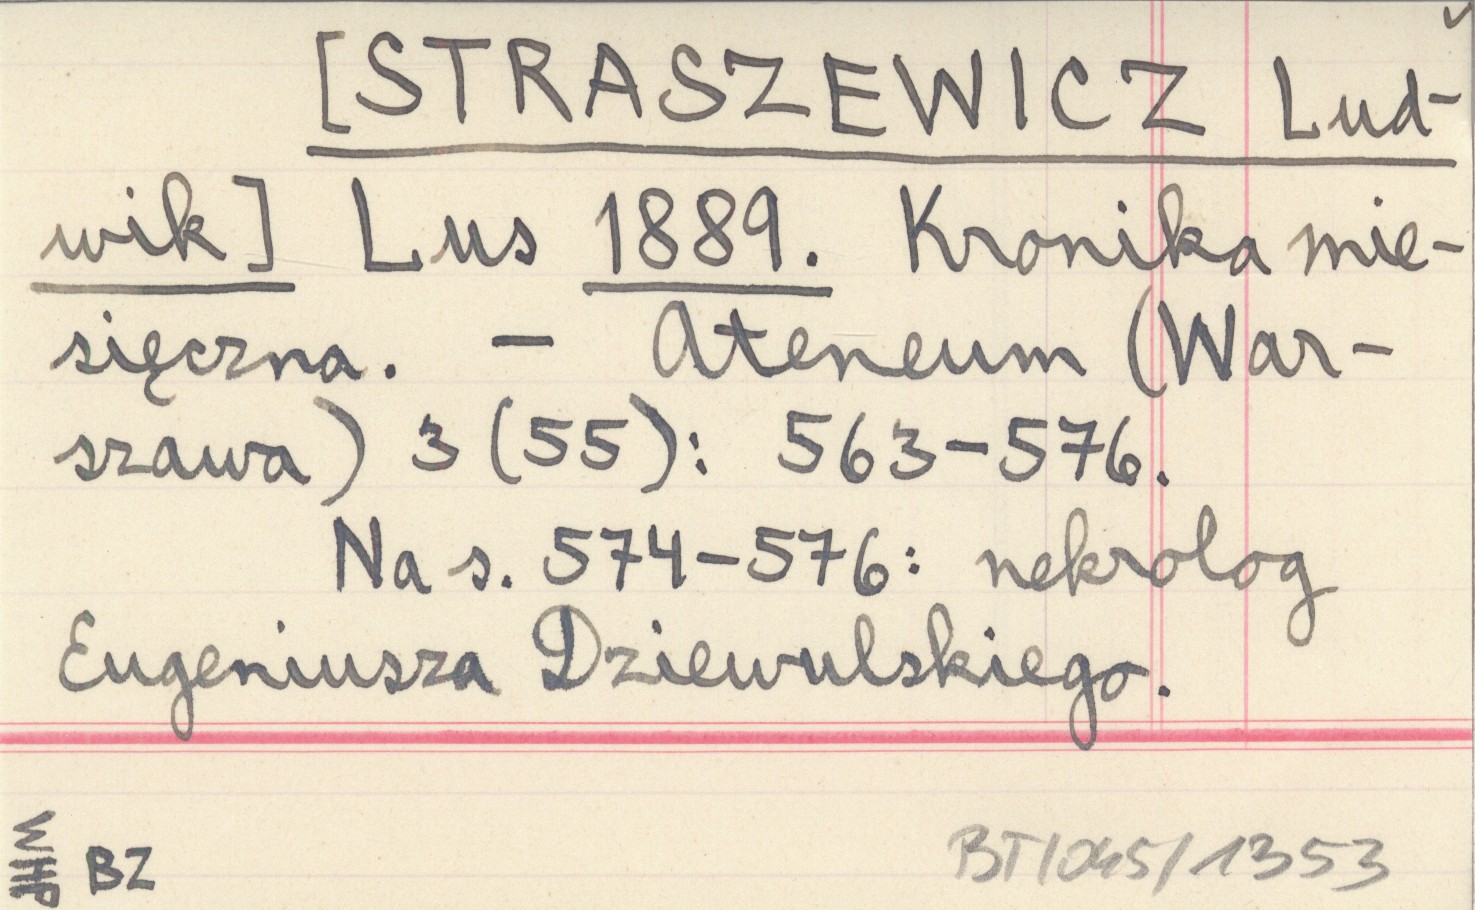 [STRASZEWICZ Lud-
wik] Lus 1889. Kronika mie-
sięczna. – Ateneum (War-
szawa) 3 (55): 563-576.
Na s. 574-576: nekrolog
Eugeniusza Dziewulskiego.
BZ
BT/045/1353